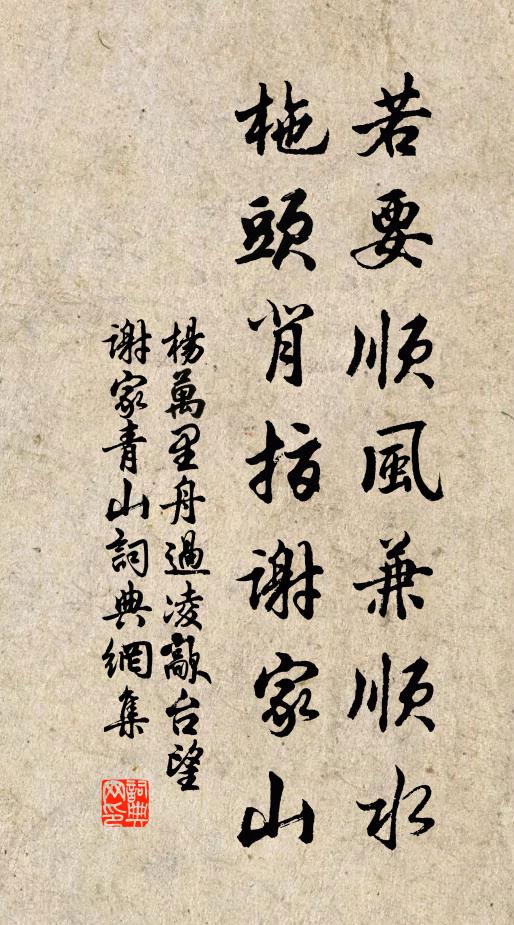 若要順風兼順水
柂頭肯指謝家山
楊萬里舟過凌歊台望
謝家青山詞典網集
詞典
网印